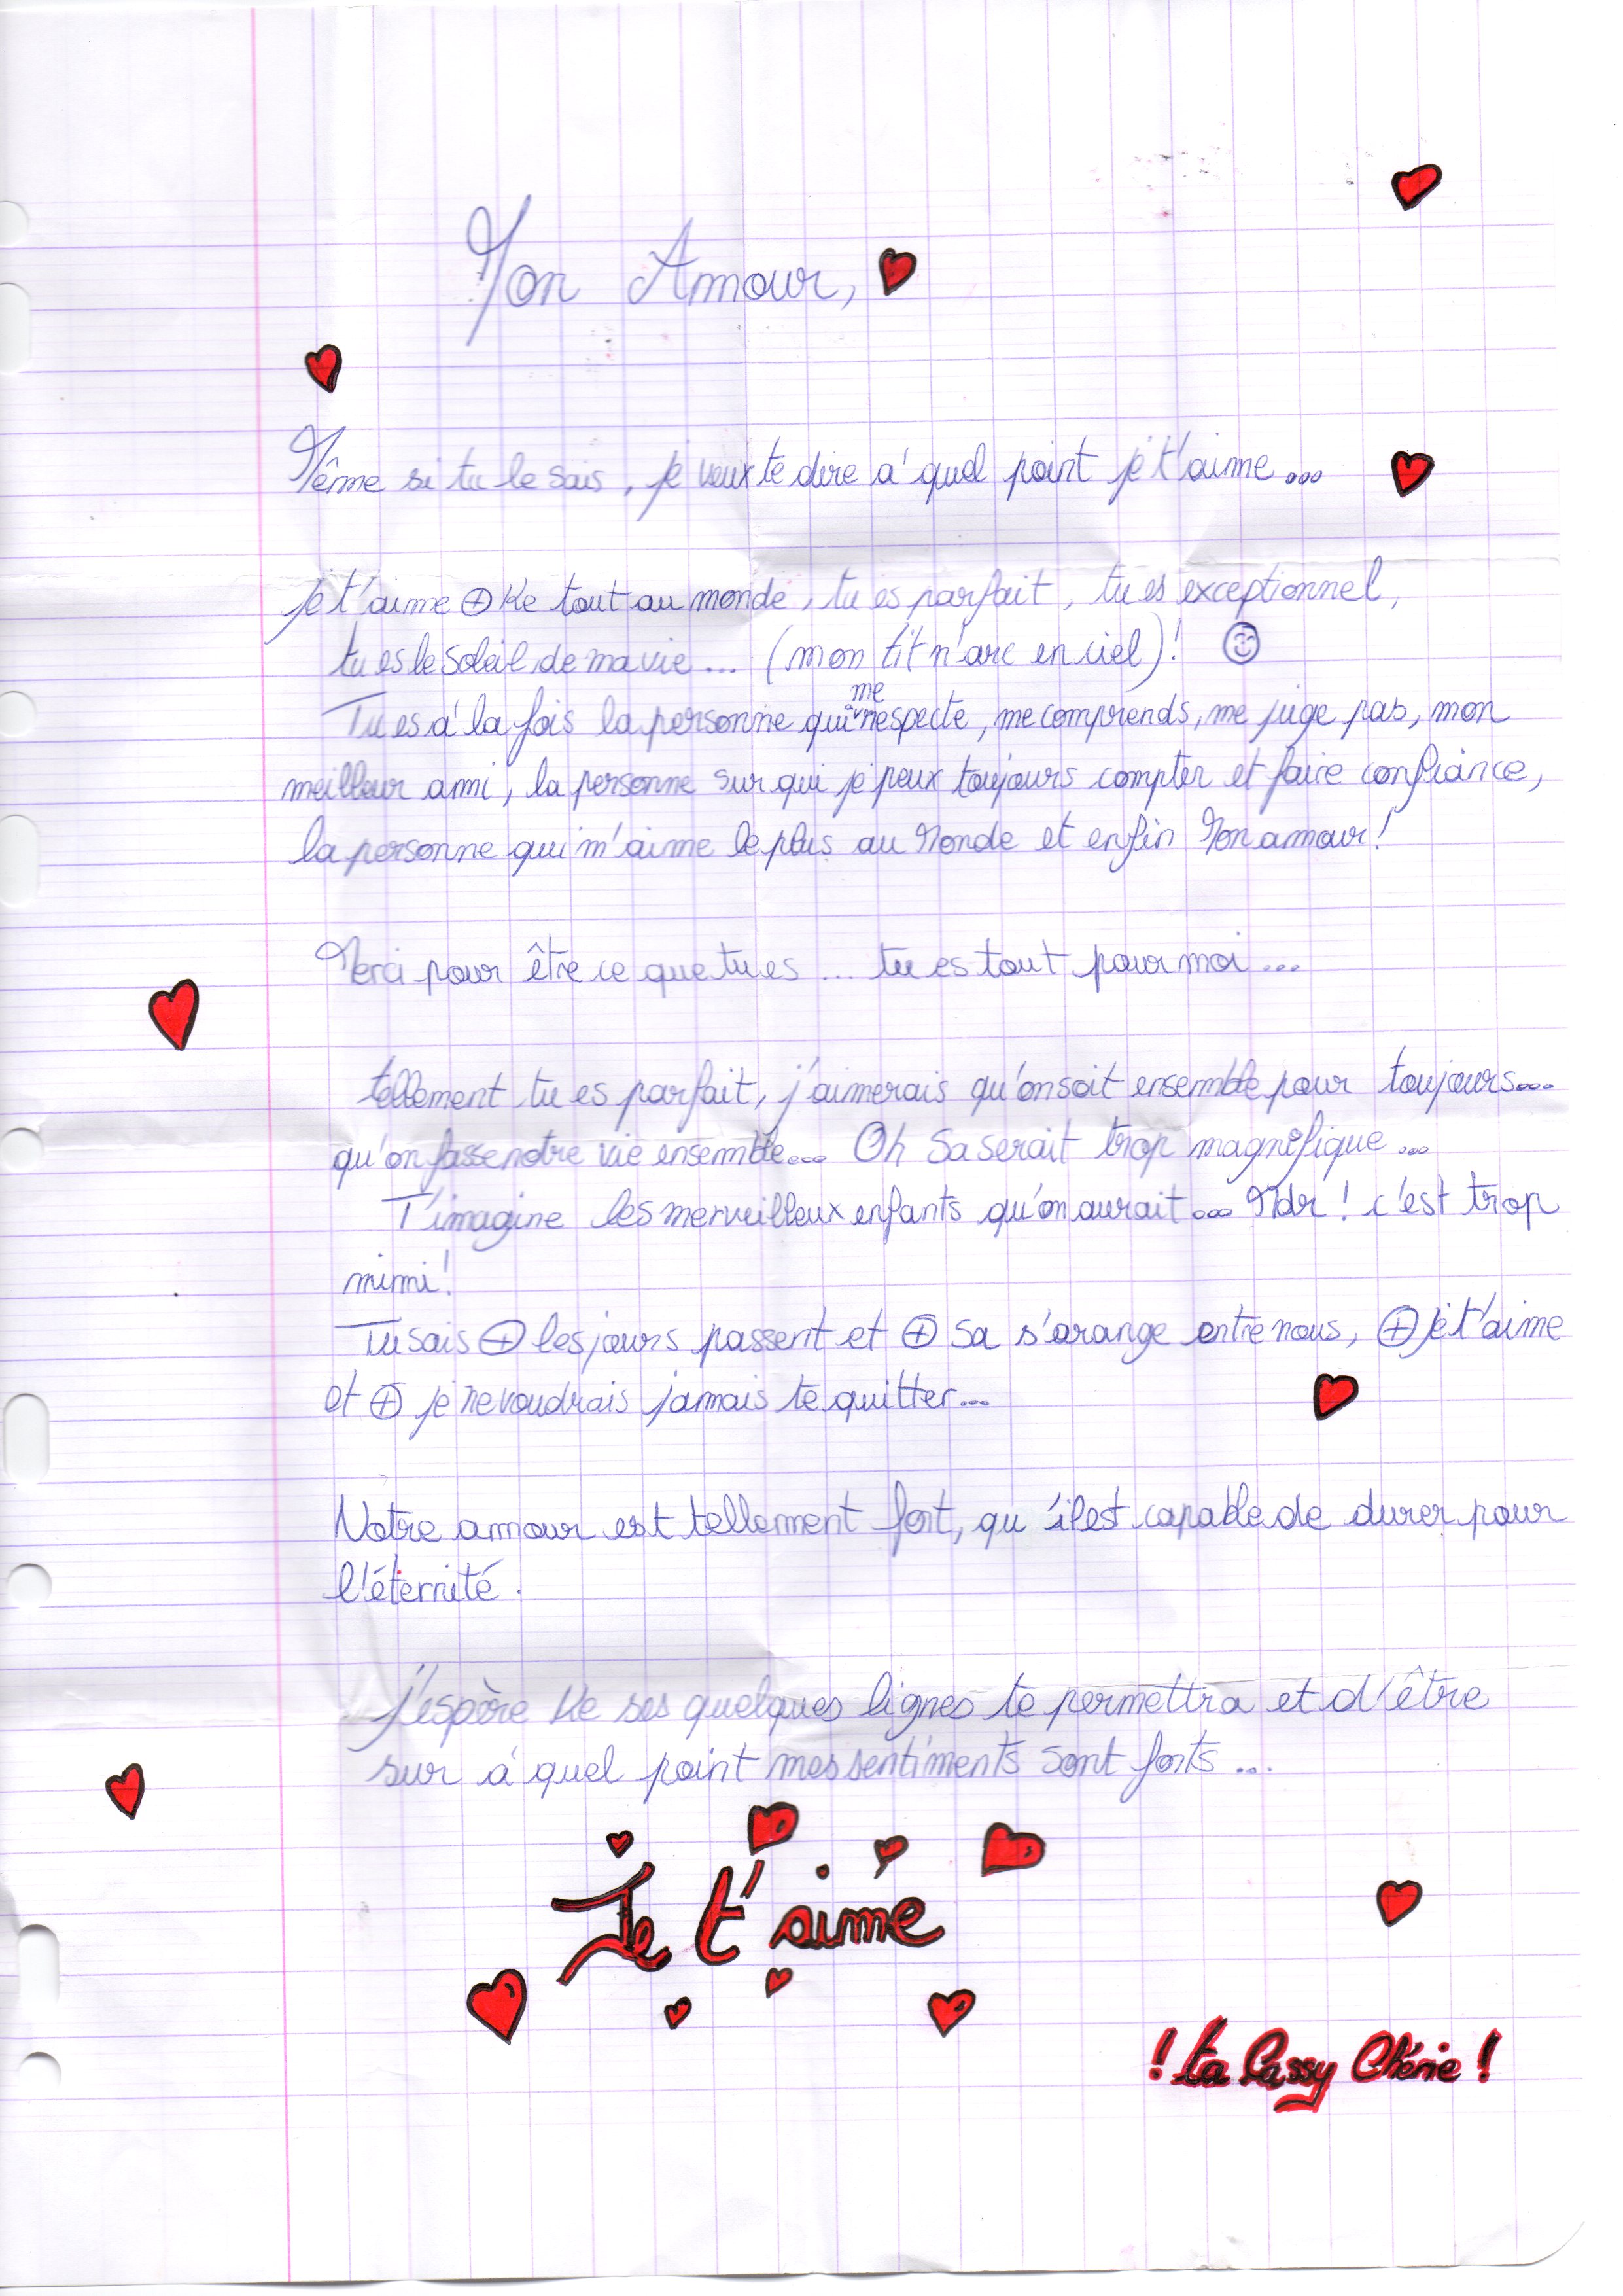 Mon Amour,
Même si tu le sais, je veux te dire à quel point je t'aime...
je t'aime ⊕ Ke tout au monde, tu es parfait, tu es exceptionnel,
tu es le soleil de ma vie... (mon tit n'arc en ciel)! ☺
Tu es à la fois la personne qui me respecte, me comprends, me juge pas, mon
meilleur ami, la personne sur qui je peux toujours compter et faire confiance,
la personne qui m'aime le plus au Monde et enfin Mon amour!
Merci pour être ce que tu es ... tu es tout pour moi...
tellement tu es parfait, j'aimerais qu'on soit ensemble pour toujours...
qu'on fasse notre vie ensemble... Oh Sa serait trop magnifique...
T'imagine les merveilleux enfants qu'on aurait... Mdr! c'est trop
mimi!
Tu sais ⊕ les jours passent et ⊕ sa s'arange entre nous, ⊕ je t'aime
et ⊕ je ne voudrais jamais te quitter...
Notre amour est tellement fort, qu'il est capable de durer pour
l'éternité.
j'espère Ke ses quelques lignes te permettra et d'être
sur à quel point mes sentiments sont forts...
Je t'aime
! ta Cassy Chérie !